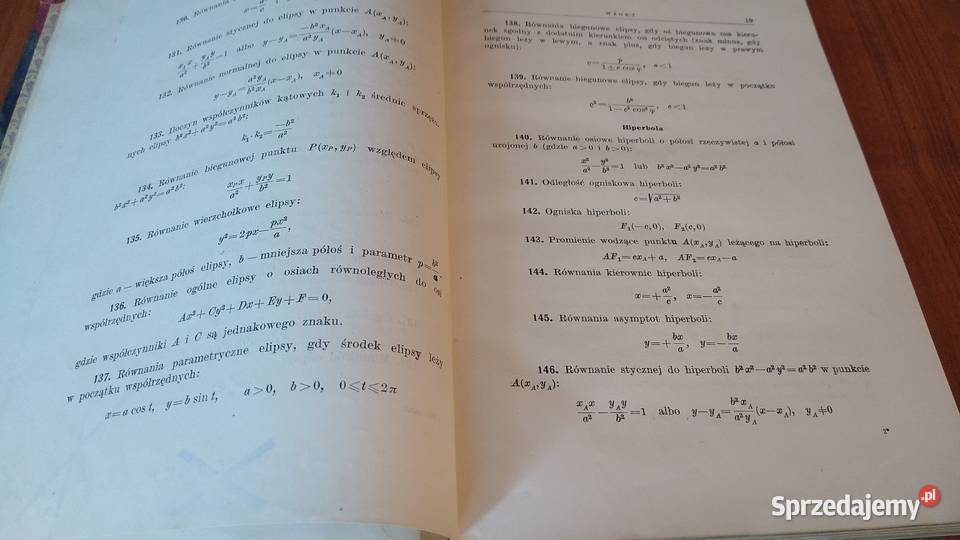 130. Równania
131. Równanie stycznej do elipsy w punkcie A(x_A, y_A):
x_A x/a² + y_A y/b² = 1 albo y−y_A = −b²x_A/a²y_A (x−x_A), y_A ≠ 0
132. Równanie normalnej do elipsy w punkcie A(x_A, y_A):
y−y_A = a²y_A/b²x_A (x−x_A), x_A ≠ 0
133. Iloczyn współczynników kątowych k₁ i k₂ średnic
nych elipsy b²x²+a²y²=a²b²:
k₁·k₂ = −b²/a²
134. Równanie biegunowej punktu P(x_P, y_P) względem elipsy
b²x²+a²y²=a²b²:
x_P x/a² + y_P y/b² = 1
135. Równanie wierzchołkowe elipsy:
y²=2px−px²/a,
gdzie a — większa półoś elipsy, b — mniejsza półoś i parametr p=b²/a.
136. Równanie ogólne elipsy o osiach równoległych do osi
współrzędnych:
Ax²+Cy²+Dx+Ey+F=0,
gdzie współczynniki A i C są jednakowego znaku.
137. Równania parametryczne elipsy, gdy środek elipsy leży
w początku współrzędnych:
x=a cos t, y=b sin t, a>0, b>0, 0⩽t⩽2π
WZORY 19
138. Równania biegunowe elipsy, gdy oś biegunowa ma kieru-
nek zgodny z dodatnim kierunkiem osi odciętych (znak minus, gdy
biegun leży w lewym, a znak plus, gdy biegun leży w prawym
ognisku):
ϱ = p/1±e cos φ, e<1
139. Równanie biegunowe elipsy, gdy biegun leży w początku
współrzędnych:
ϱ² = b²/1−e² cos² φ, e<1
Hiperbola
140. Równanie osiowe hiperboli o półosi rzeczywistej a i półosi
urojonej b (gdzie a>0 i b>0):
x²/a² − y²/b² = 1 lub b²x²−a²y²=a²b²
141. Odległość ogniskowa hiperboli:
c=√a²+b²
142. Ogniska hiperboli:
F₁(−c,0), F₂(c,0)
143. Promienie wodzące punktu A(x_A, y_A) leżącego na hiperboli:
AF₁=ex_A+a, AF₂=ex_A−a
144. Równania kierownic hiperboli:
x=+a²/c, x=−a²/c
145. Równania asymptot hiperboli:
y=+bx/a, y=−bx/a
146. Równanie stycznej do hiperboli b²x²−a²y²=a²b² w punkcie
A(x_A, y_A):
x_A x/a² − y_A y/b² = 1 albo y−y_A = b²x_A/a²y_A (x−x_A), y_A ≠ 0
2*
Sprzedajemy.pl